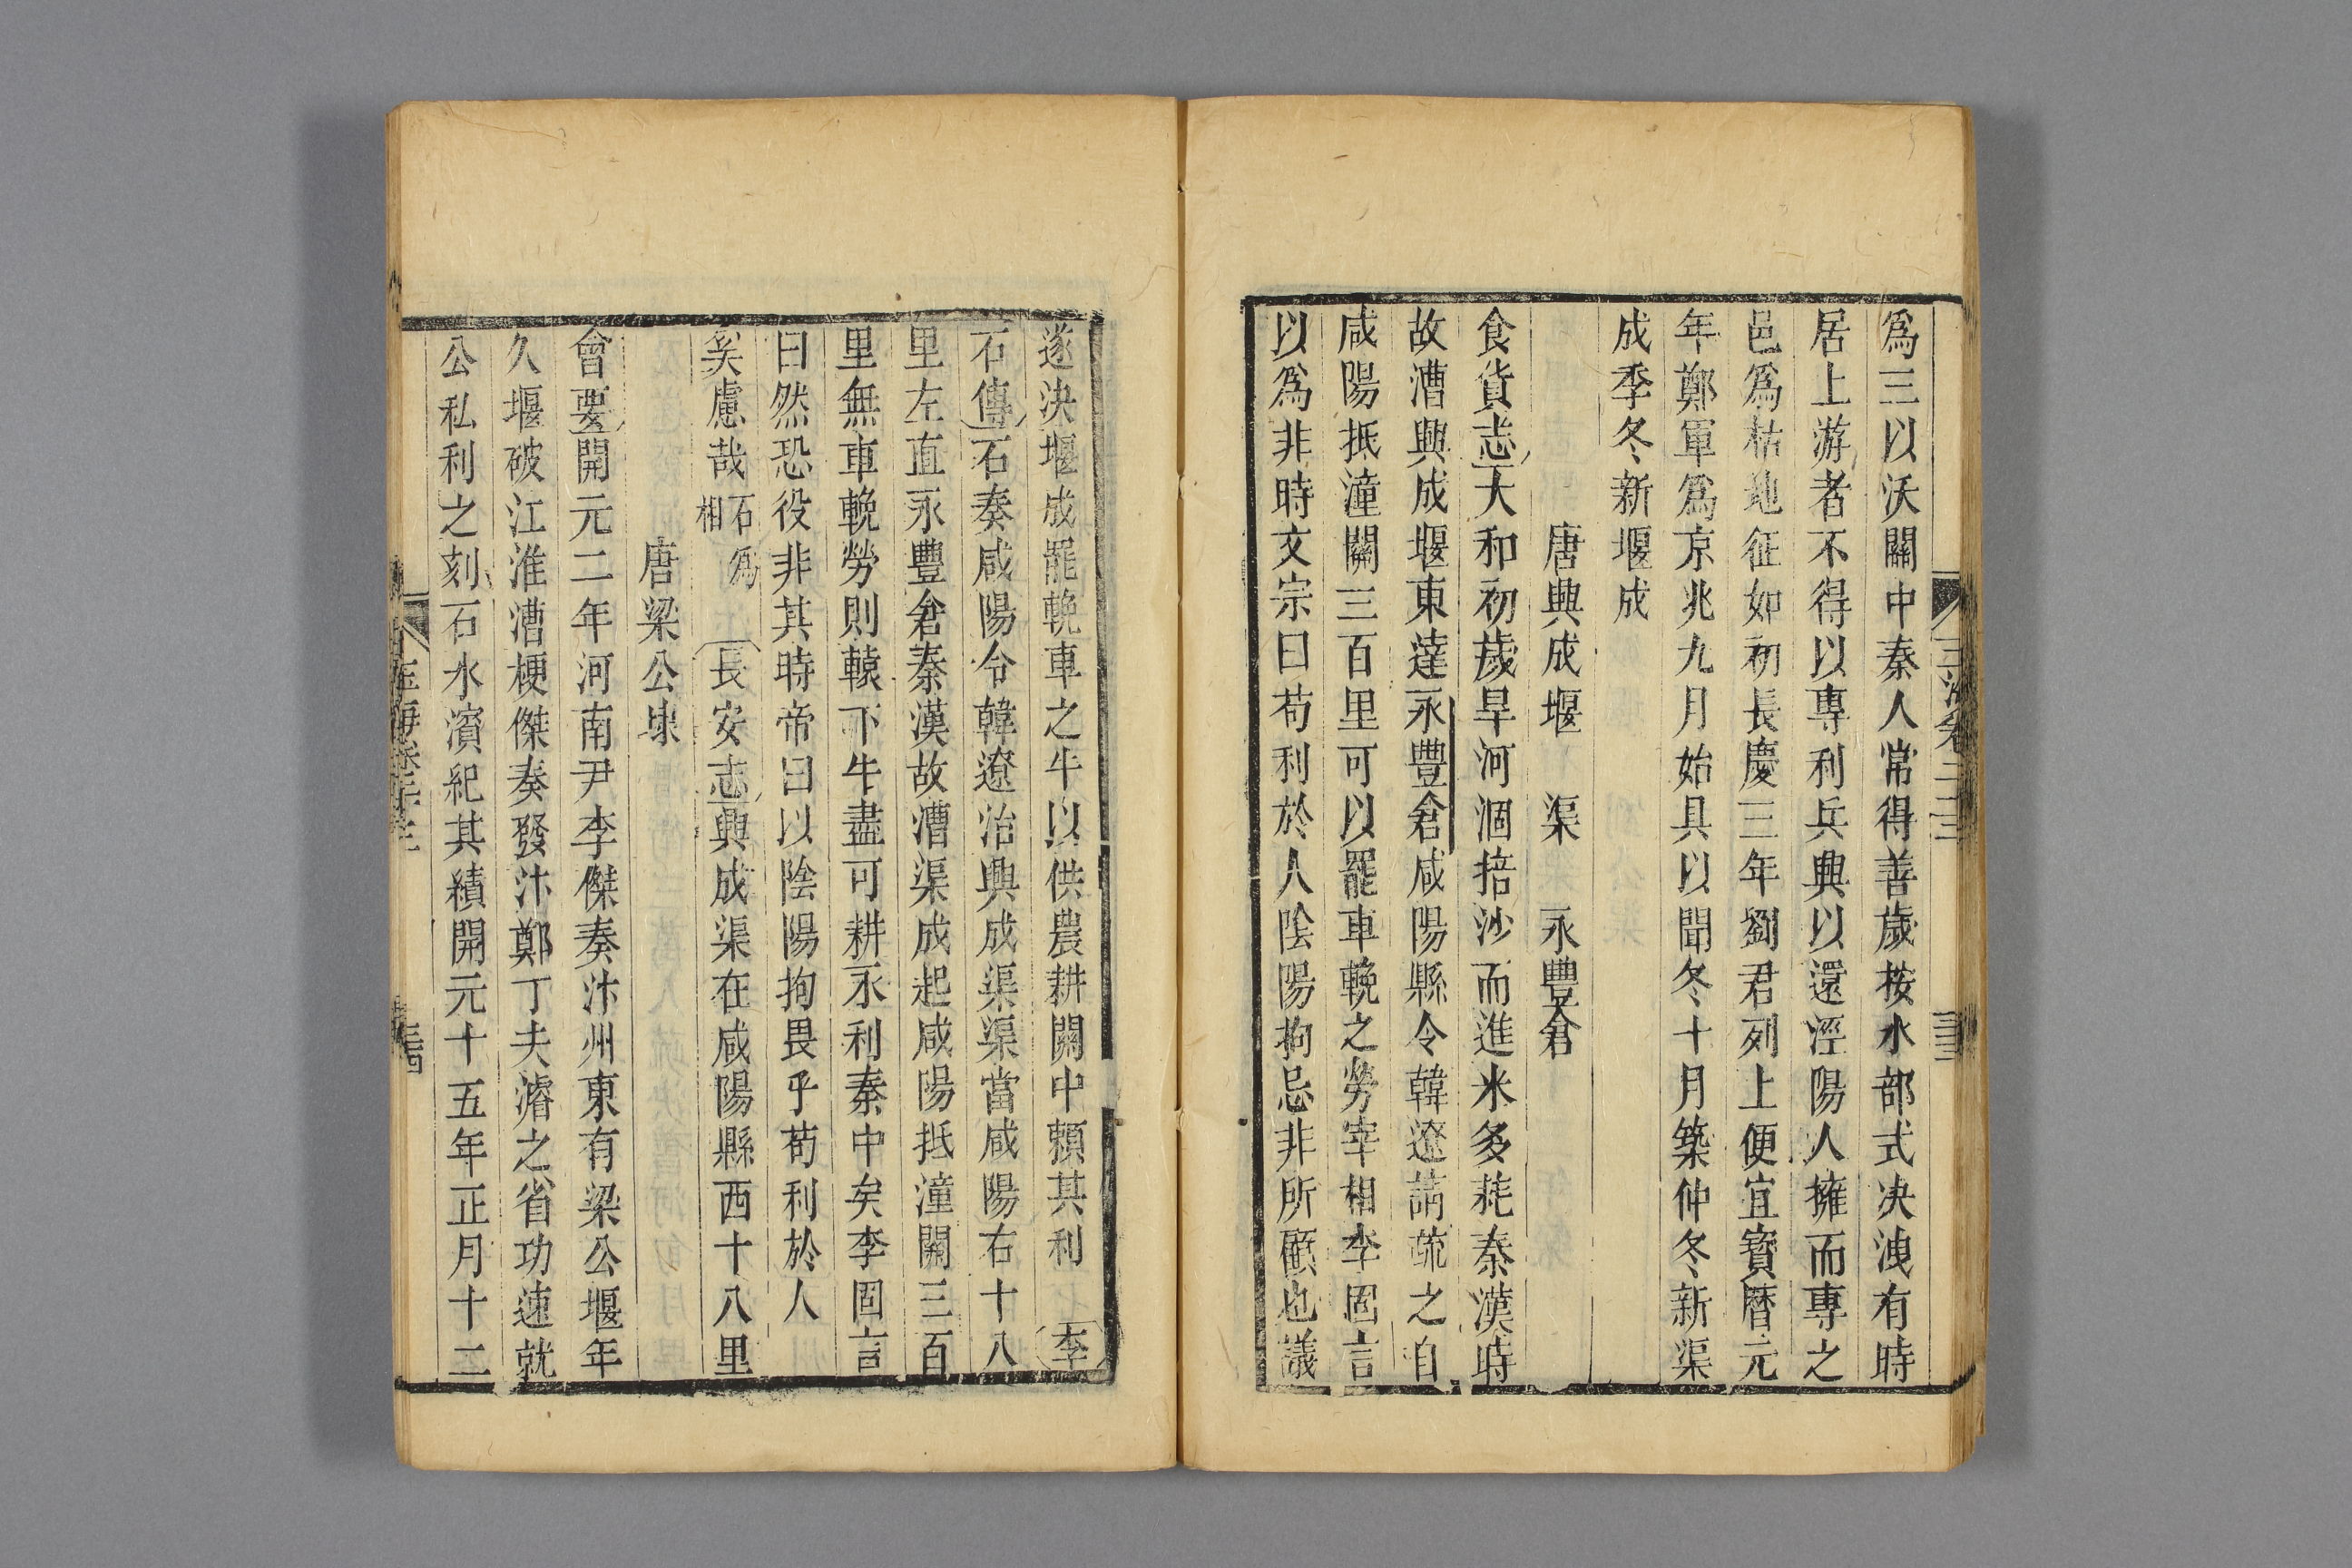 爲三以沃關中秦人常得善歲按水部式決洩有時
居上游者不得以專利兵興以還涇陽人擁而專之
邑爲枯地征如初長慶三年劉君列上便宜寶曆元
年鄭軍爲京兆九月始具以聞冬十月築仲冬新渠
成季冬新堰成
唐興成堰 渠 永豐倉
食貨志大和初歲旱河涸掊沙而進米多耗秦漢時
故漕興成堰東達永豐倉咸陽縣令韓遼請疏之自
咸陽抵潼關三百里可以罷車輓之勞宰相李固言
以爲非時文宗曰苟利於人陰陽拘忌非所顧也議
遂決堰成罷輓車之牛以供農耕關中賴其利 李
石傳石奏咸陽令韓遼治興成渠渠當咸陽右十八
里左直永豐倉秦漢故漕渠成起咸陽抵潼關三百
里無車輓勞則轅下牛盡可耕永利秦中矣李固言
曰然恐役非其時帝曰以陰陽拘畏乎苟利於人
奚慮哉石爲相 長安志興成渠在咸陽縣西十八里
唐梁公堰
會要開元二年河南尹李傑奏汴州東有梁公堰年
久堰破江淮漕梗傑奏發汴鄭丁夫濬之省功速就
公私利之刻石水濱紀其績開元十五年正月十二